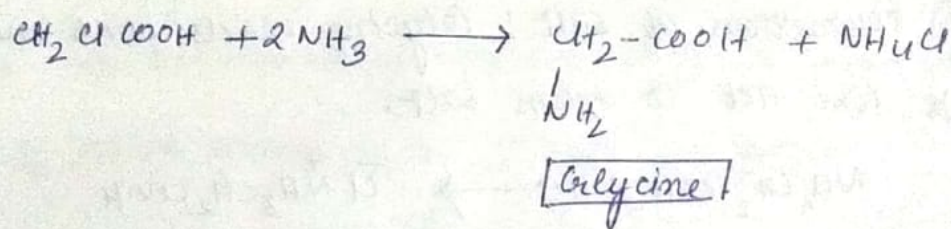 CH2 Cl COOH + 2 NH3 ⟶ CH2-COOH + NH4Cl
|
NH2
Glycine